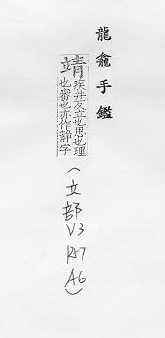 龍龕手鑑
靖疾井反立也思也理
也審也亦作竫字
(立部 V3 P.47 A6)